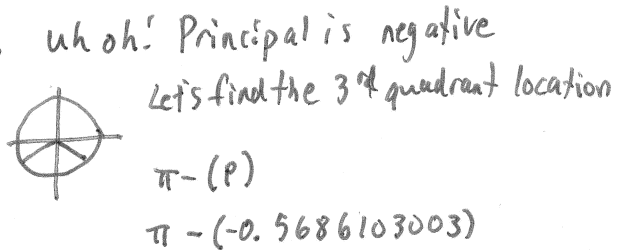 Uh oh! Principal is negative
Let's find the 3rd quadrant location
π-(P)
π - (-0.5686103003)